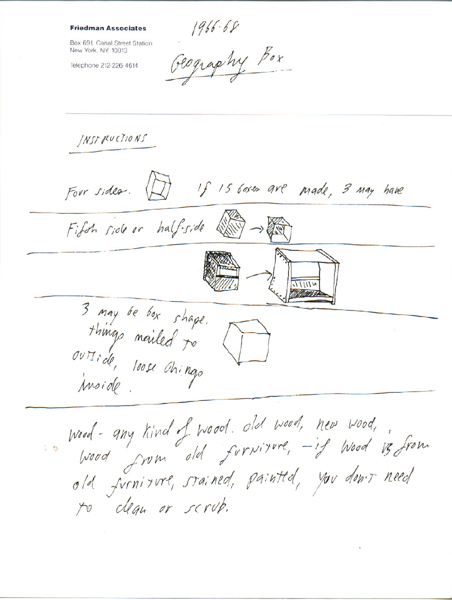 Friedman Associates
Box 691, Canal Street Station
New York, NY 10013
Telephone 212-226-4614
1966-68
Geography Box
INSTRUCTIONS
Four sides. If 15 boxes are made, 3 may have
Fifth side or half-side
3 may be box shape.
things nailed to
outside, loose things
inside.
Wood - any kind of wood. old wood, new wood,
wood from old furniture, - if wood is from
old furniture, stained, painted, you don't need
to clean or scrub.